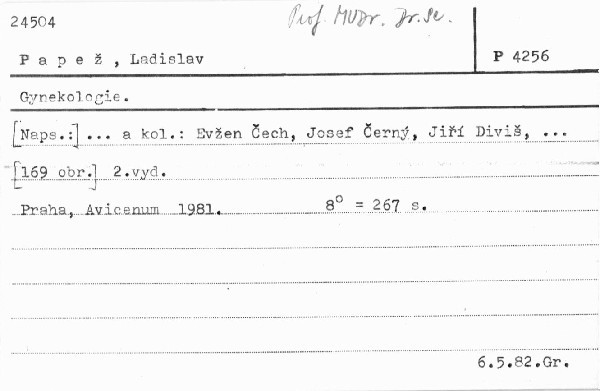 24504 Prof. MUDr. Dr.Sc.
P a p e ž , Ladislav P 4256
Gynekologie.
[Naps.:] ... a kol.: Evžen Čech, Josef Černý, Jiří Diviš, ...
[169 obr.] 2.vyd.
Praha, Avicenum 1981. 8° = 267 s.
6.5.82.Gr.